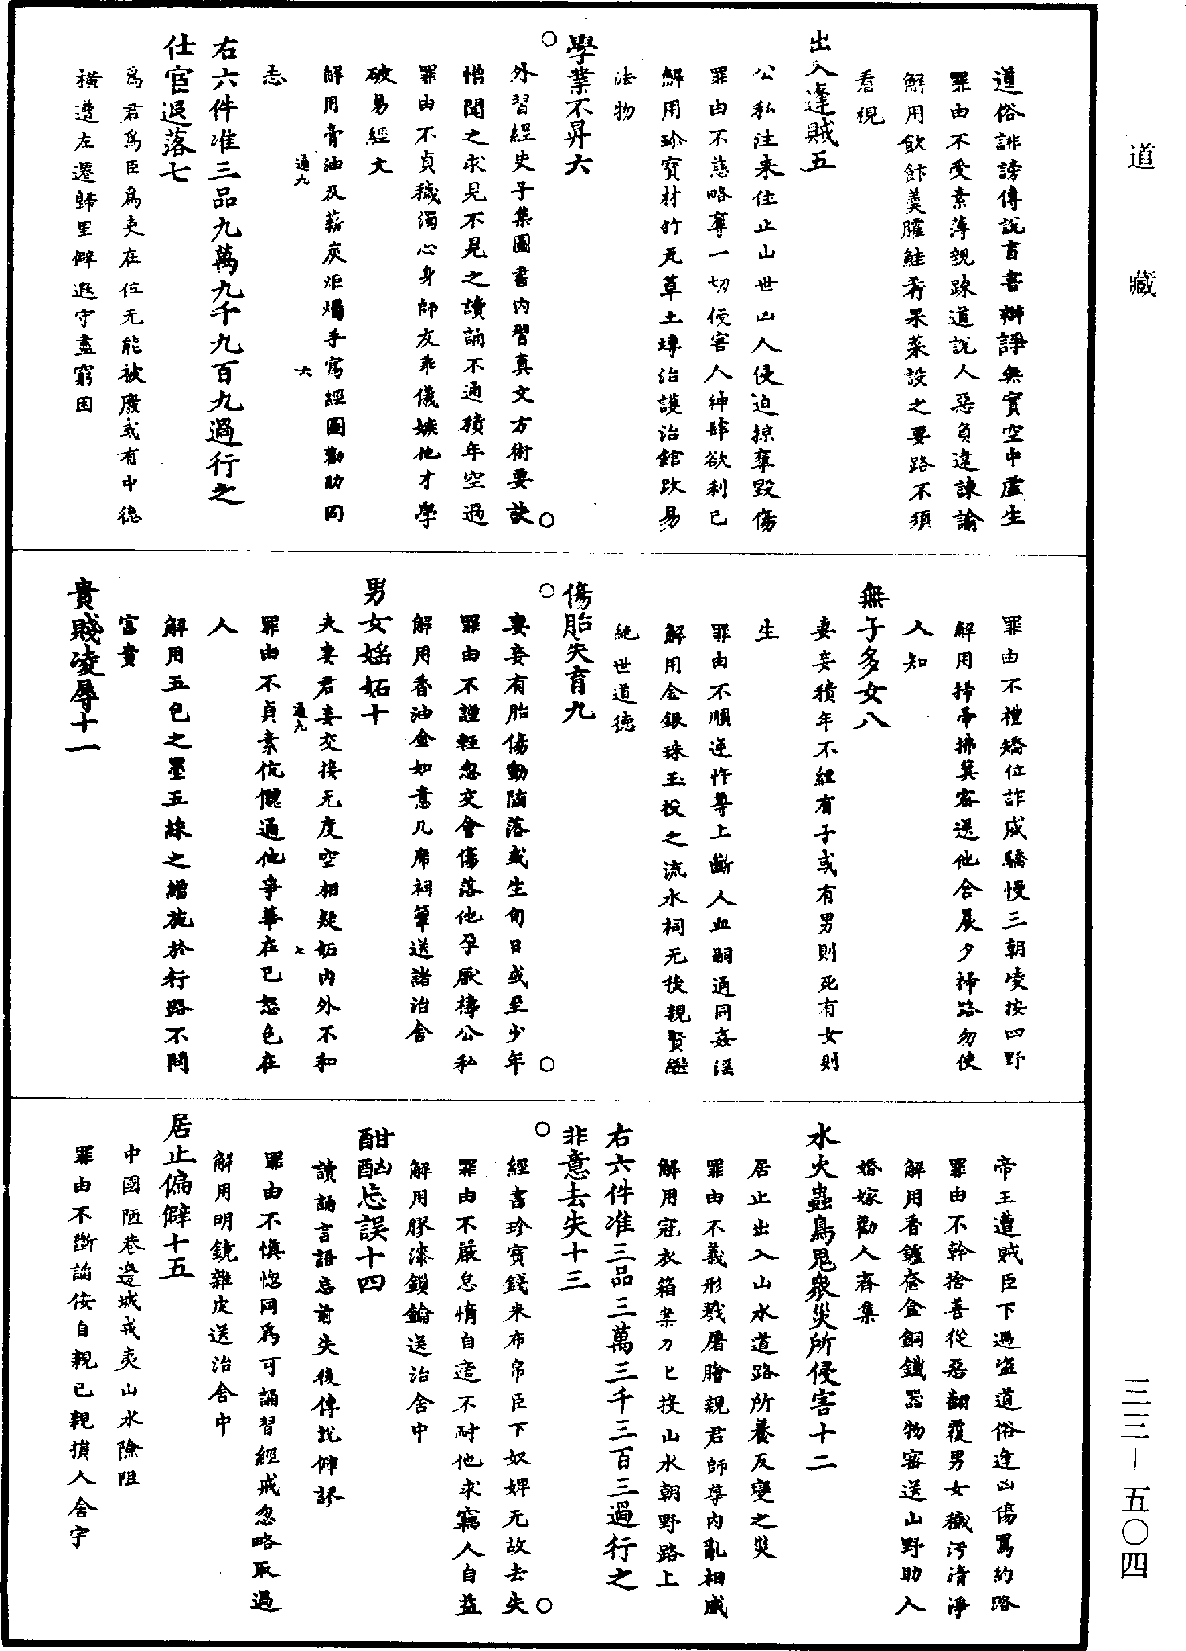 道藏
道俗誹謗傳說書辯諍無實空中虛生
罪由不受素薄親踈道說人惡負違諫諭
解用飲飰羮臛鮭肴果菜設之要路不須
看視
出入逢賊五
公私往來住止山世凶人侵迫掠奪毀傷
罪由不慈略奪一切侵害人紳肆欲利己
解用珍寶材竹瓦草土塼治護治館改易
法物
學業不昇六
外習經史子集圖書內習真文方術要訣
憎聞之求見不見之讀誦不通積年空過
罪由不貞穢濁心身師友乖儀嫉他才學
破易經文
解用膏油及薪炭炬燭手寫經圖勸助同
通九 六
志
右六件准三品九萬九千九百九過行之
仕官退落七
為君為臣為吏在位无能被廢或有中德
橫遭左遷歸里僻遐守盡窮困
罪由不禮矯位詐威驕慢三朝凌按四野
解用掃帚拂箕密送他合晨夕掃路勿使
人知
無子多女八
妻妾積年不經有子或有男則死有女則
生
罪由不順逆忤尊上斷人血嗣通同姦淫
解用金銀珠玉投之流水祠无後親賢繼
絕世道德
傷胎失育九
妻妾有胎傷動墮落或生旬日或至少年
罪由不謹輕忽交會傷落他孕厭禱公私
解用香油金如意几席祠筆送諸治舍
男女婬妬十
夫妻君妾交接无度空相疑妬內外不和
通九 七
罪由不貞素伉儷通他爭華在己怒色在
人
解用五色之墨五綵之繒施於行路不問
富貴
貴賤凌辱十一
帝王遭賊臣下遇盜道俗逢凶傷罵約路
罪由不幹捨善從惡翻覆男女穢污清淨
解用香鑪奩金銅鐵器物密送山野助人
婚嫁勸人齋集
水火蟲鳥鬼衆災所侵害十二
居止出入山水道路所養反變之災
罪由不義形戮屠膾親君師尊內亂相威
解用冠衣箱案刀匕投山水朝野路上
右六件准三品三萬三千三百三過行之
非意去失十三
經書珍寶錢米布帛臣下奴婢无故去失
罪由不嚴怠惰自遣不耐他求竊人自益
解用膠漆鎖鑰送治舍中
酣酗忘誤十四
讀誦言語忘前失後傳說僻謬
罪由不慎惚罔為可誦習經戒忽略取過
解用明鏡雜皮送治舍中
居止偏僻十五
中國陋巷邊城戎夷山水險阻
罪由不斷諂佞自親己親攢人舍宇
三三—五〇四